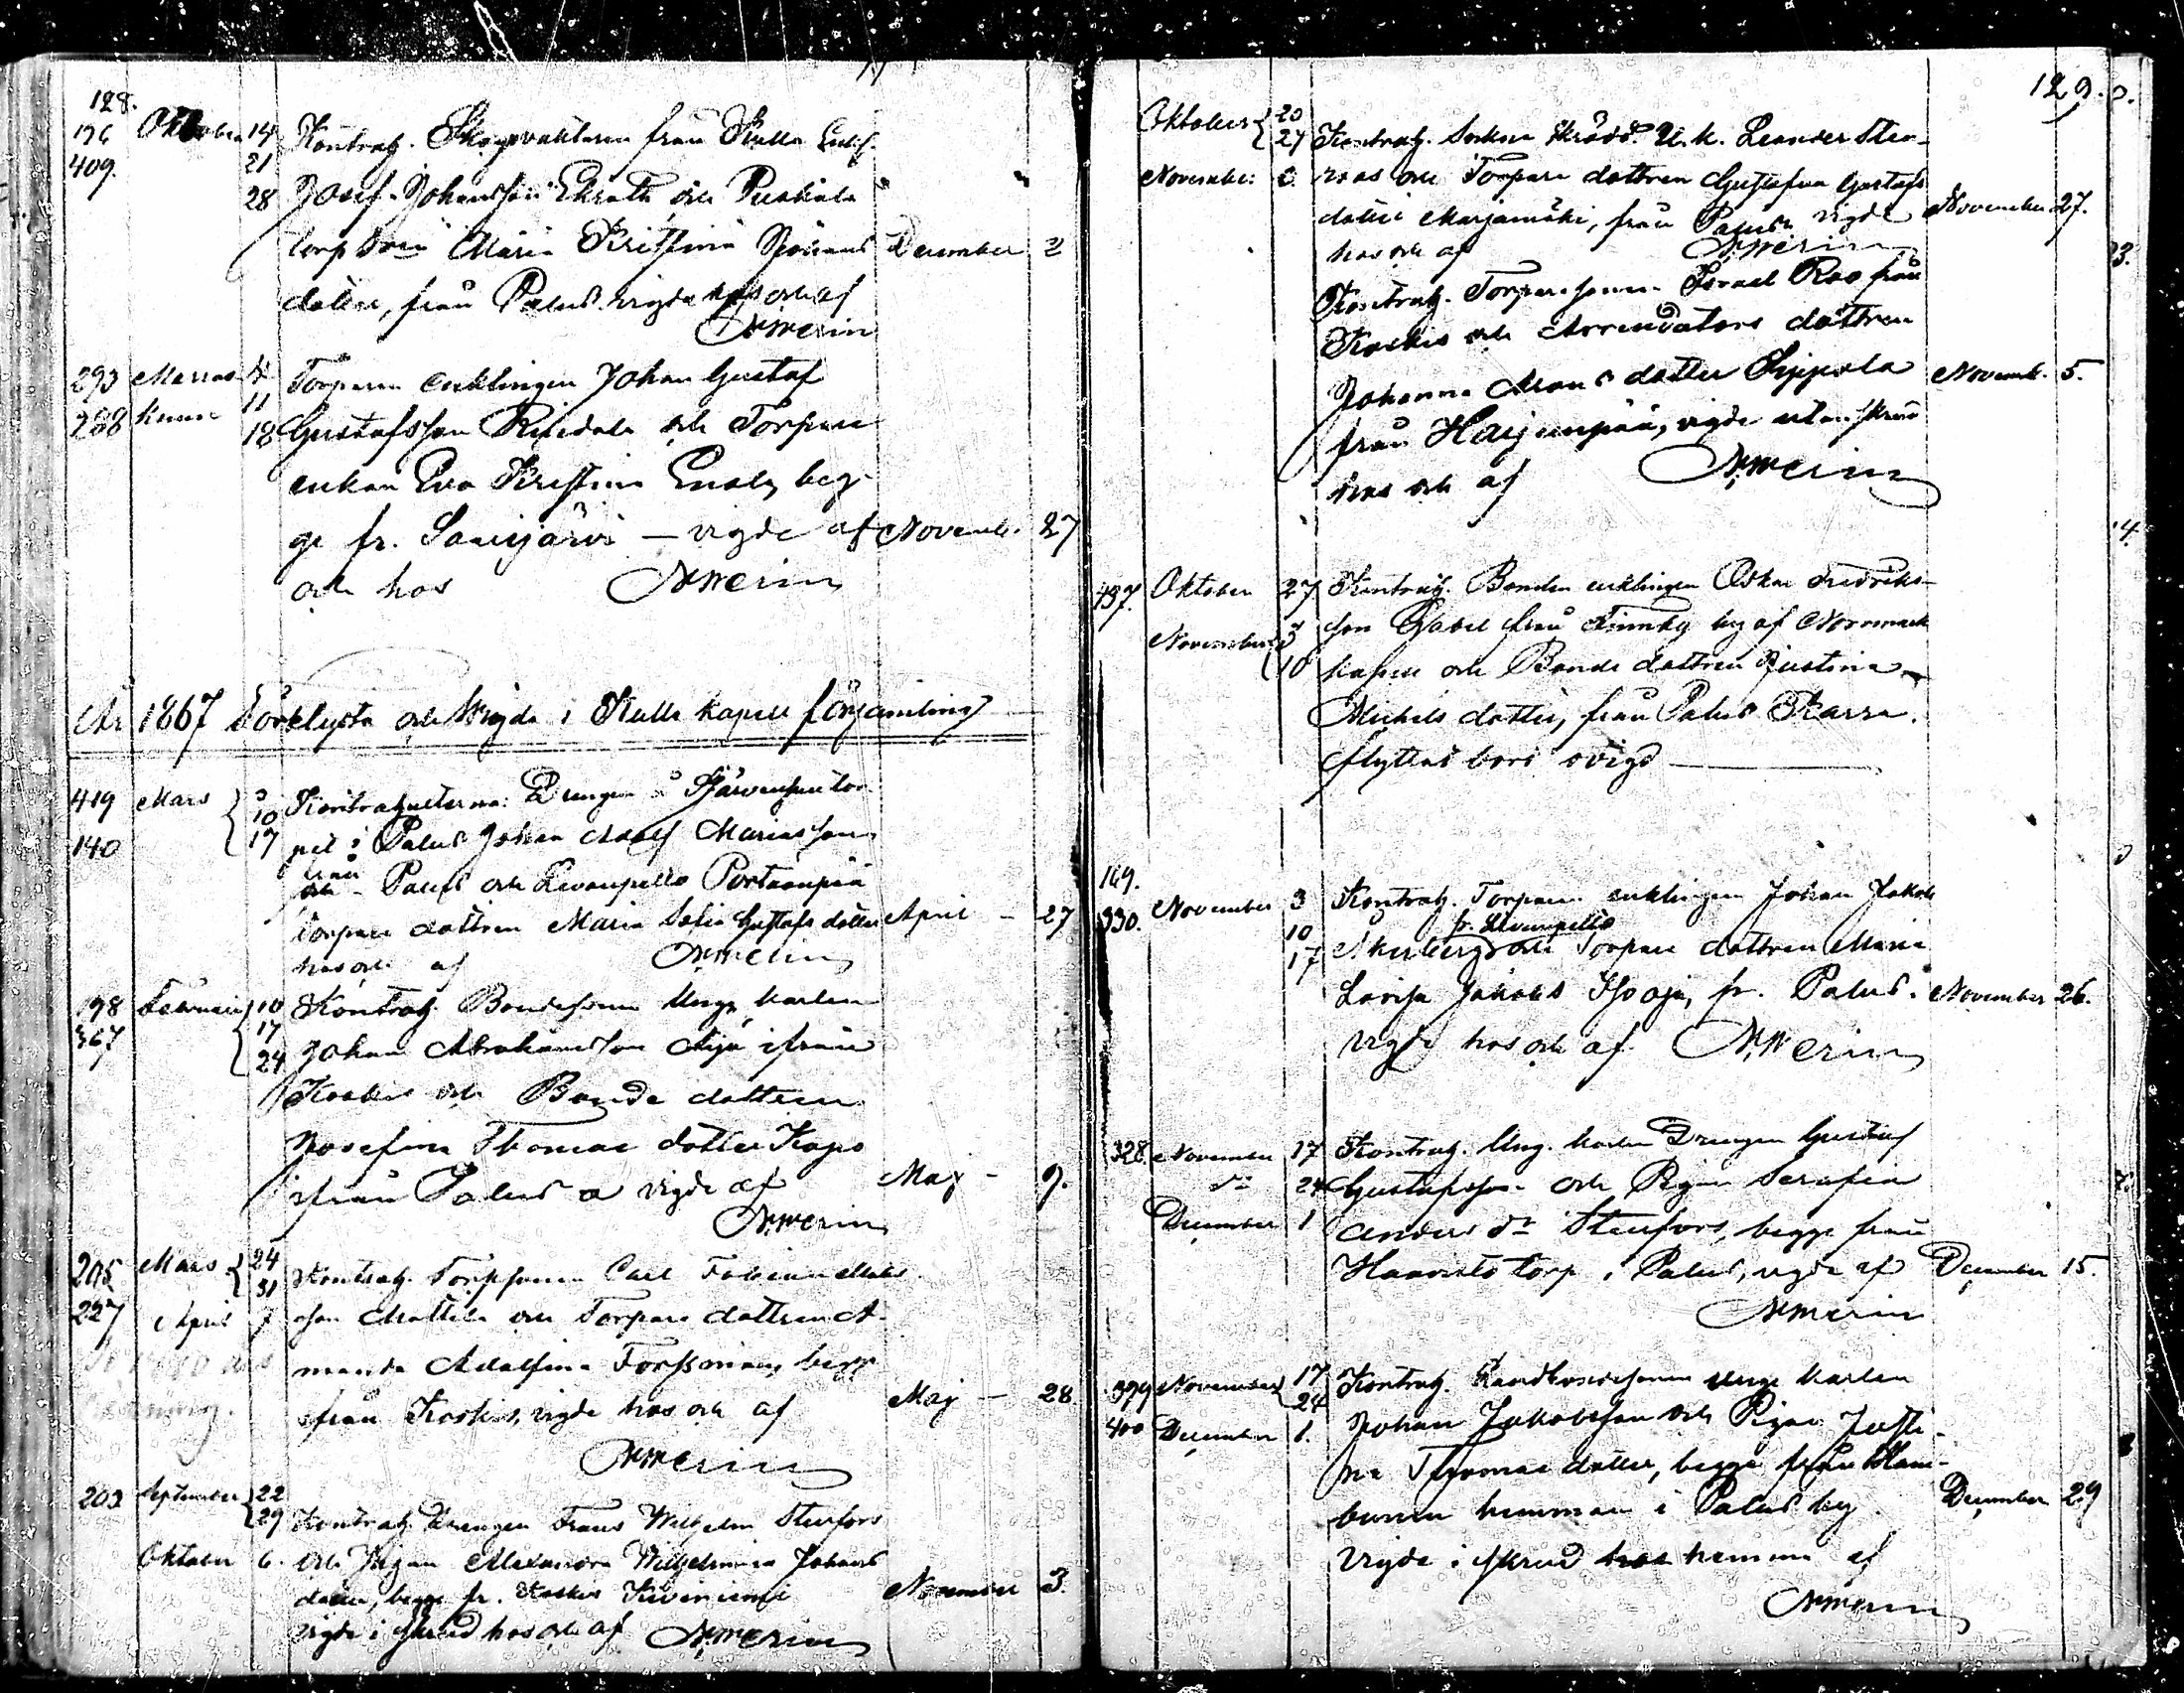 128.
176 Oktober 14 Kontrah. Skogvaktaren från Kulla Enkl.
409. 21
28 Josef Johansson Ekroth och Puskala
torp Maria Kristina Johans December 2
dotter, från Palus vigde hos och af
N: Merin
293 Marras 4 Torparen enklingen Johan Gustaf
288 kuun 11
18 Gustafsson Rindala och Torpare
enkan Eva Kristina Enala, beg-
ge fr. Savijärvi — vigde af Novemb. 27
och hos N: Merin
År 1867 Lyste och Wigde i Kulla kapell församling
419 Mars 3 Kontrahenterna: Drengen å tor-
140 10
17 pet i Palus Johan Adolf Mariasson
från Palus och Levanpelto Portaanpää
torpare dottren Maria Sofia Gustafs dotter April — 27
hos och af N: Merin
198 Februari 10 Kontrah. Bondesonen Unge karlen
367 17
24 Johan Abrahamsson Äijä ifrån
Koskis och Bonde dottren
Josefina Thomae dotter Kapo
ifrån Palus a vigde af Maj — 9.
N: Merin
205 Mars 24
31 Kontrah. Torpsonen Carl Fabian Matts
227 April 7 son Mattila och Torpare dottren A-
manda Adolfina Forssman, begge
från Koskis, vigde hos och af Maj — 28
N: Merin
203 September 22
29 Kontrah. Drengen Frans Wilhelm Stenfors
Oktober 6. och Pigan Alexandra Wilhelmina Johans
dotter, begge fr. Koskis Kiviniemi November 3.
vigde i skrud hos och af N: Merin
129.
Oktober 20
27 Kontrah. Socken skrädd. U. k. Leander Sten-
November 3. roos och Torpare dottren Gustafva Gustafs
dotter Marjamäki, från Palus vigde November 27.
hos och af N: Merin
Kontrah. Torparesonen Israel Roo från
Koskis och Arrendators dottren
Johanna Arons dotter Sippola Novemb. 5.
från Harjunpää, vigde utan skrud
hos och af N: Merin
437. Oktober 27 Kontrah. Bonden enklingen Oskar Fredriks-
November 3 son Gabel från Finnby by af Norrmark
10 kapell och Bonde dottren Justina
Michels dotter, från Palus Karra.
flyttat bort ovigd —
169.
330. November 3 Kontrah. Torparen enklingen Johan Jakob
10 fr. Levanpelto
17 Åkerberg och Torpare dottren Maria
Lovisa Jakobs Isoaja, fr. Palus. November 26.
vigde hos och af N: Merin
328. November 17 Kontrah. Ung. karlen Drengen Gustaf
do 24 Gustafsson och Pigan Serafia
December 1 Anders dr Stenfors, begge från
Haavisto torp i Palus, vigde af December 15.
N: Merin
399 November 17
24 Kontrah. Landbondesonen Unge karlen
400 December 1. Johan Jakobsson och Pigan Justi-
na Thomae dotter, begge från
hemman i Palus by December 29
Vigde i skrud hemma af
N: Merin